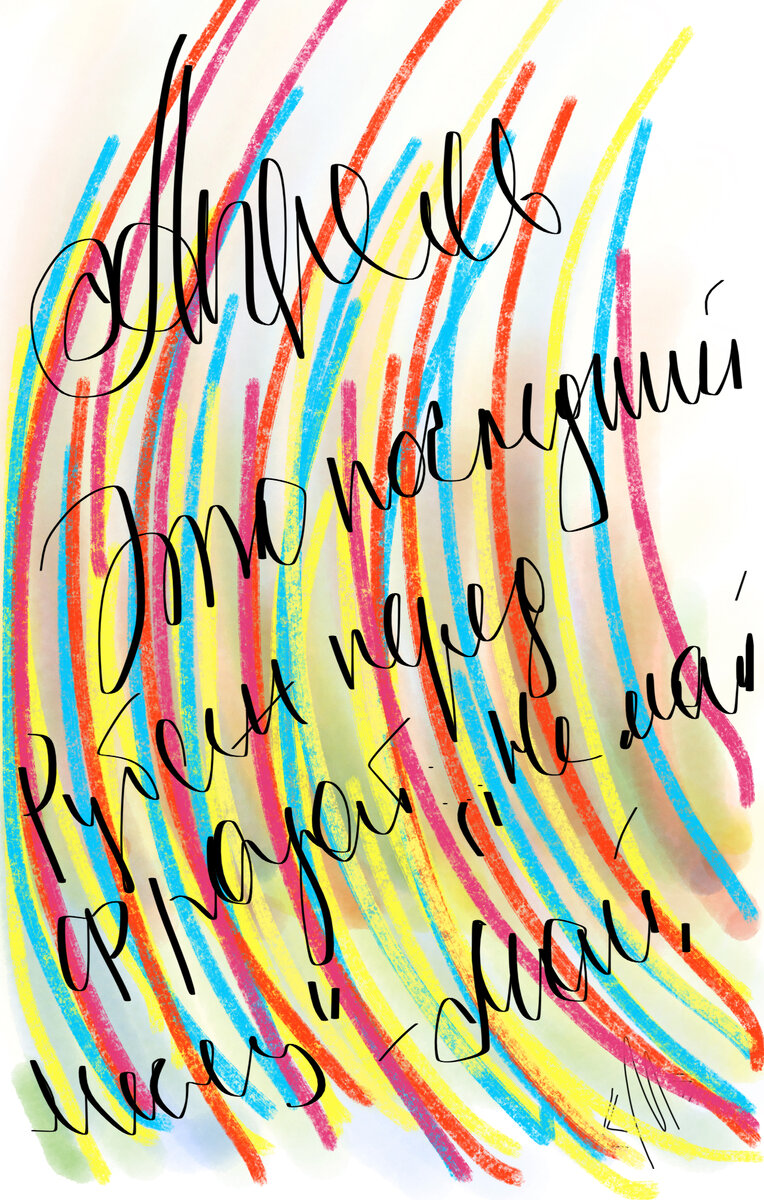 Апрель
Это последний
рубеж перед
фразой: "Не май
месяц" - Май.